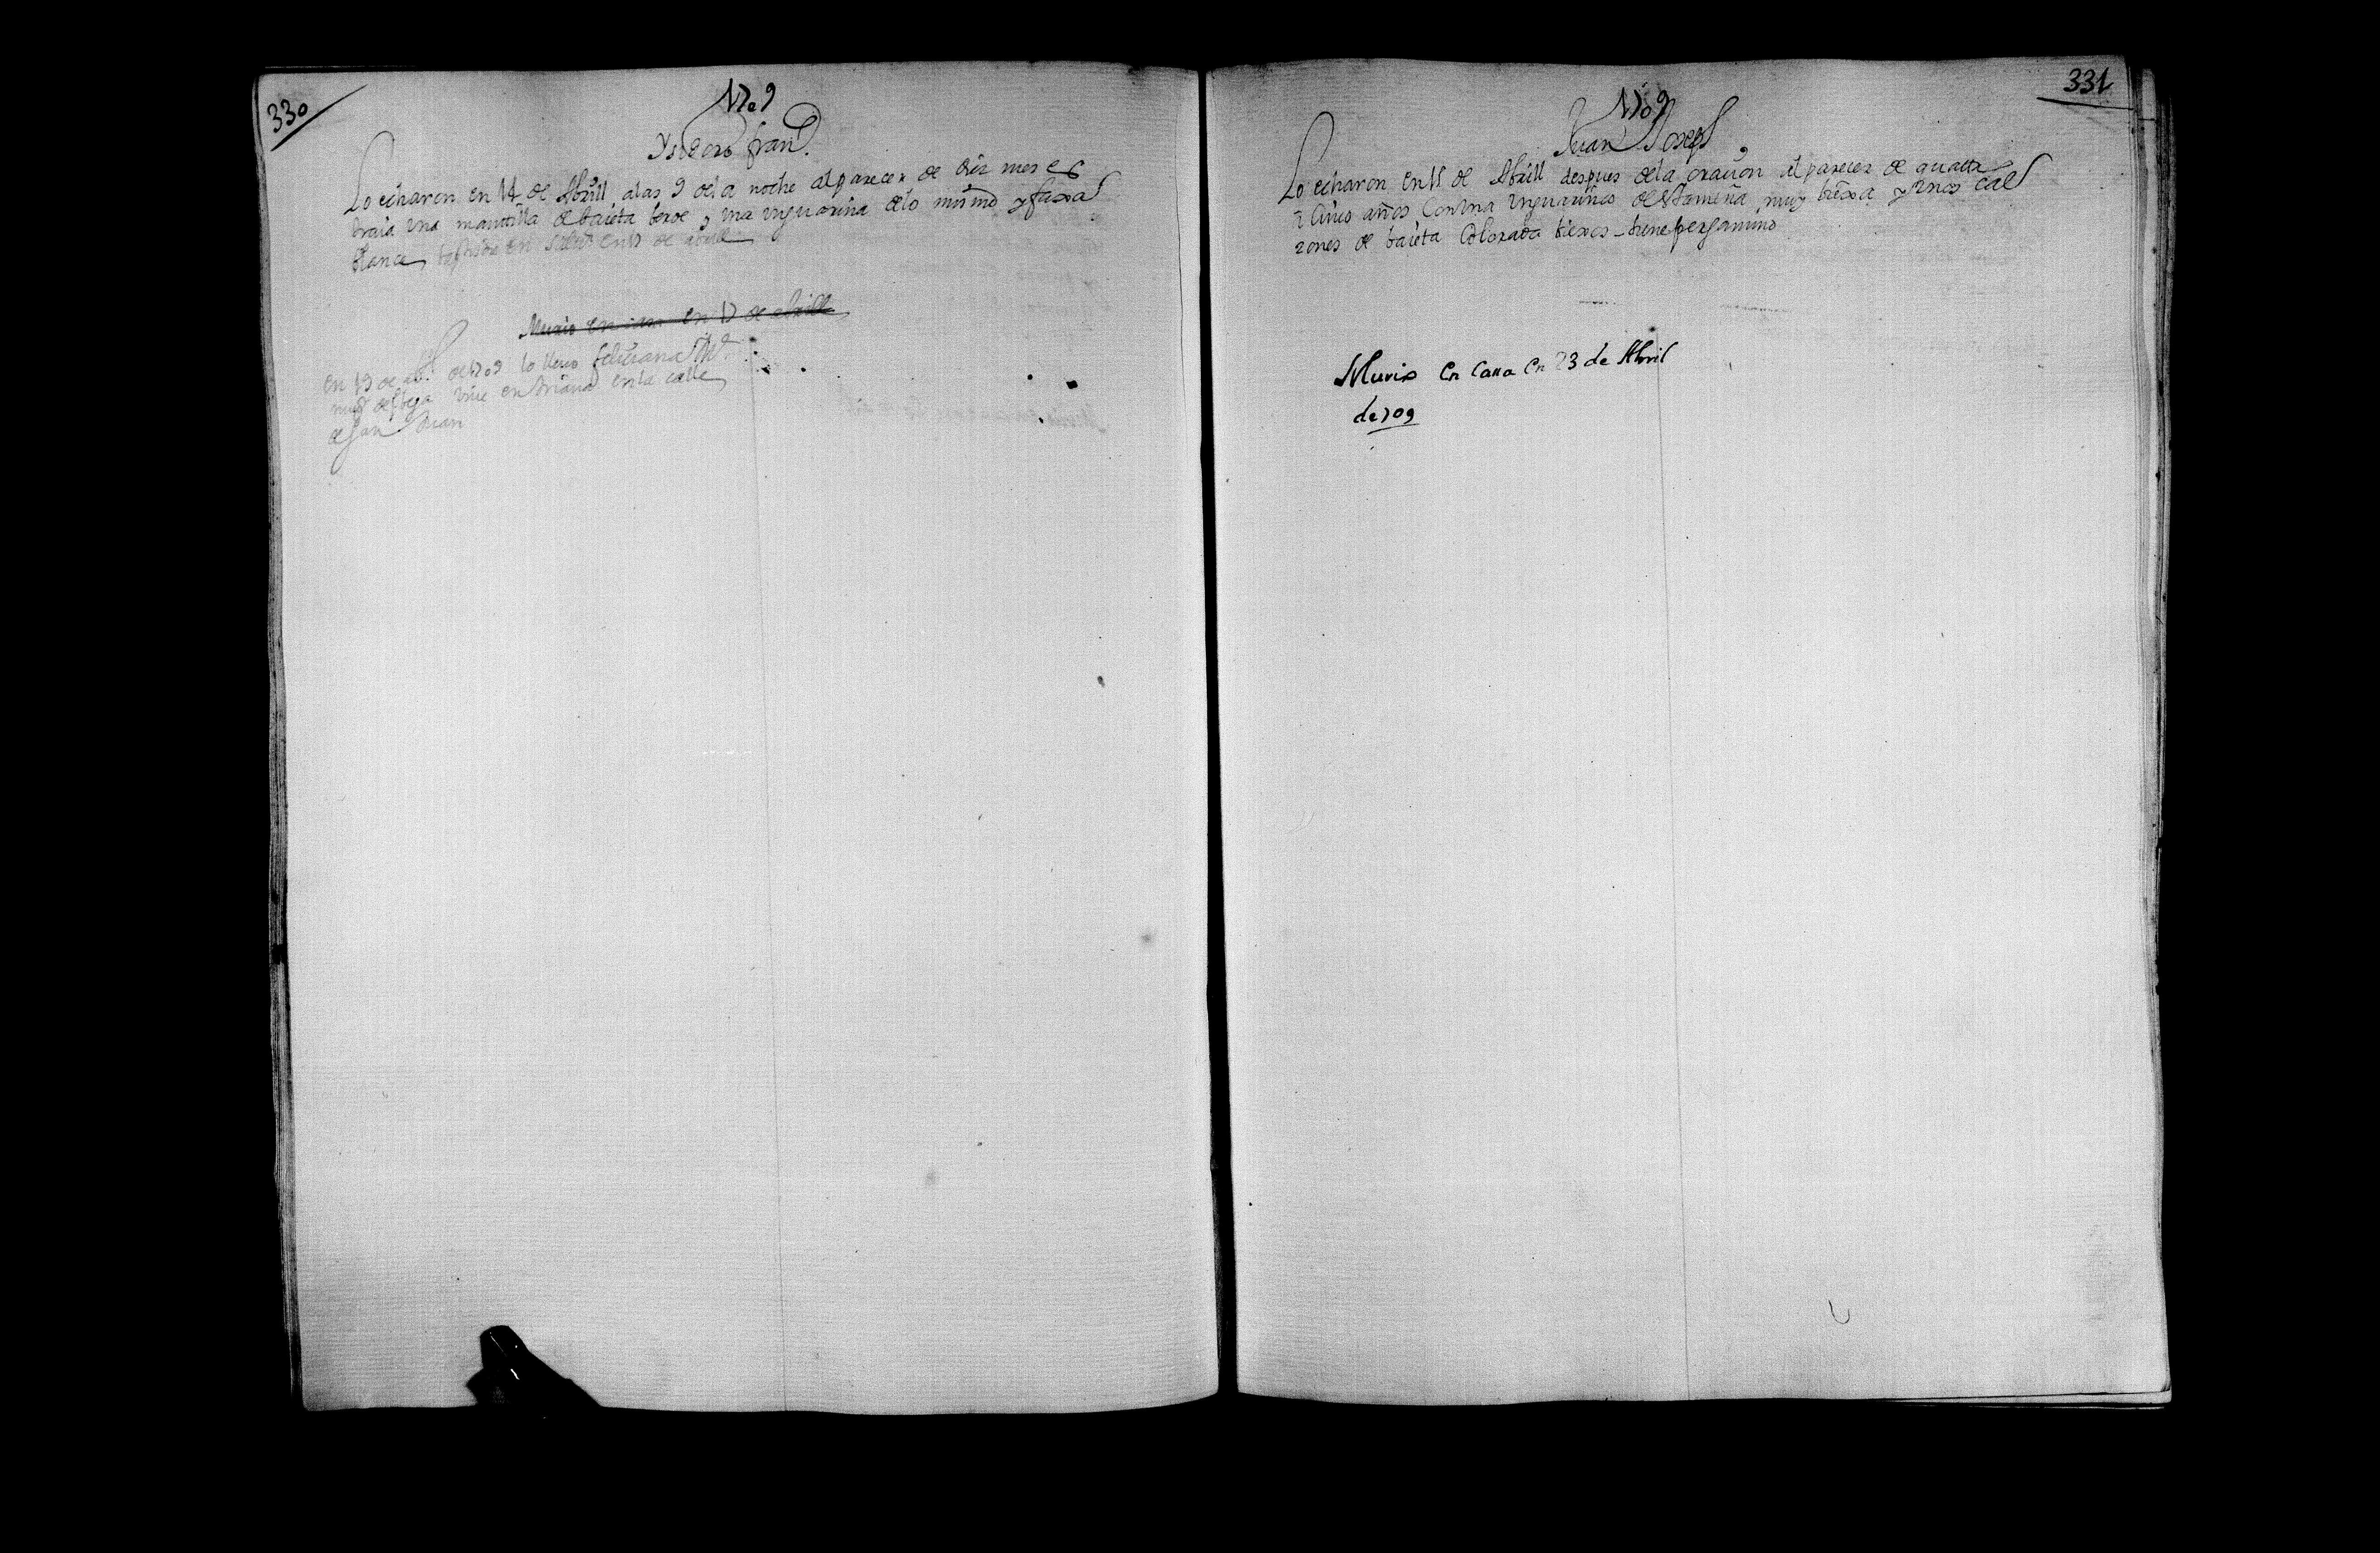 330
1709
Ysidoro fran.co
Lo echaron en 14 de Abrill a las 9 de la noche al parecer de diez meses
traia una mantilla de baieta berde y una unguarina de lo mismo y faxa
blanca en 17 de abrill
Murio en casa en 17 de abrill
en 19 de ab.l de 1709 lo llevo feliciana M.a
vive en triana en la calle
de san Juan
331
1709
Juan Joseph
Lo echaron en 15 de Abrill despues de la oracion al parecer de quatro
a cinco años con una unguarina de estameña muy biexa y unos cal
zones de baieta Colorada biexos - tiene pergamino
Murio en Casa en 23 de Abril
de 709